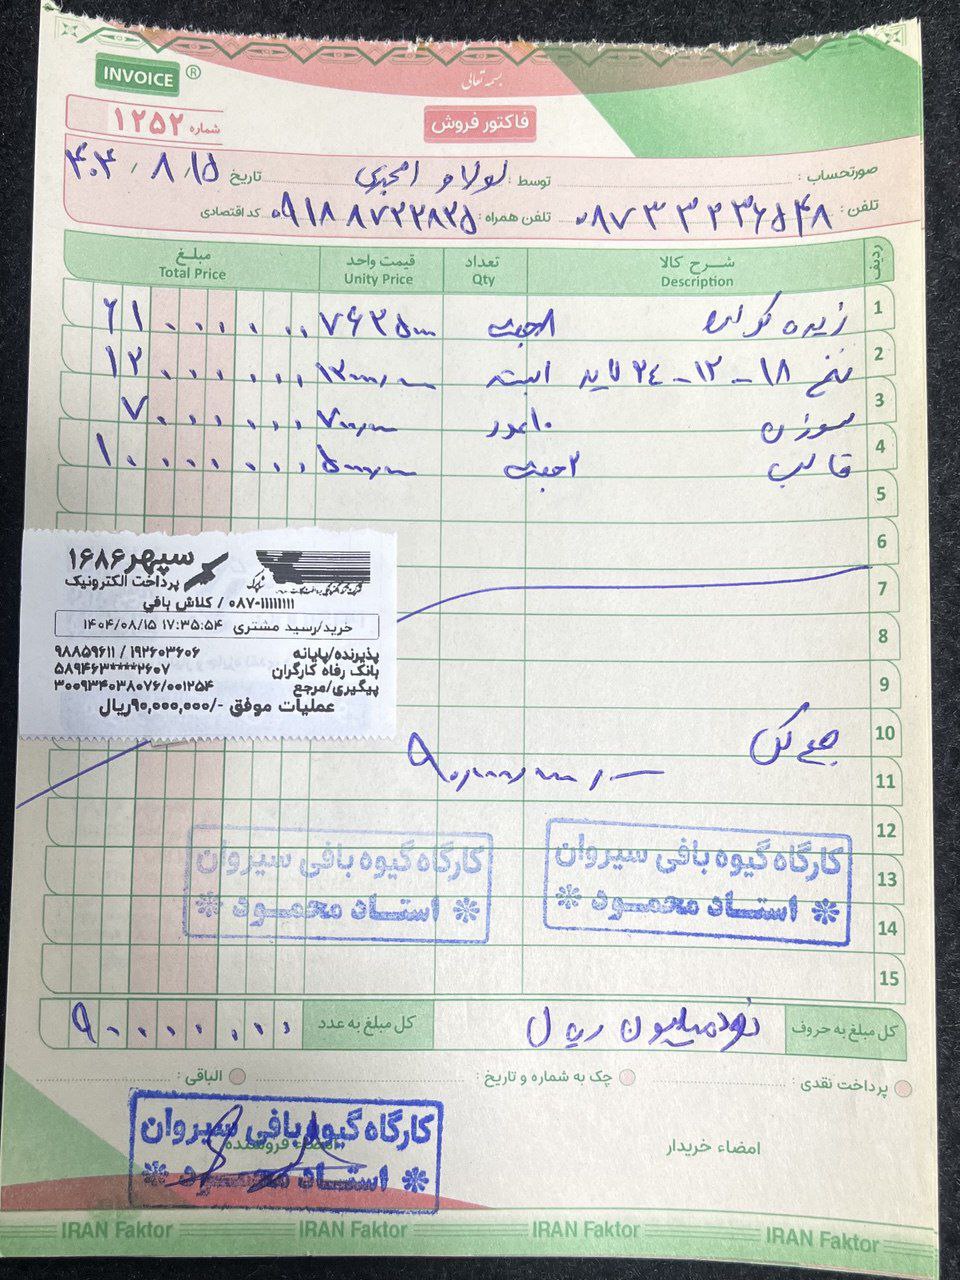 بسمه تعالی
INVOICE ®
فاکتور فروش
شماره ۱۲۵۲
صورتحساب : توسط : تاریخ ۴۰۴ / ۸ / ۱۵
تلفن : ۰۸۷۳۳۲۳۶۵۴۸ تلفن همراه : ۰۹۱۸۸۷۲۲۸۲۵ کد اقتصادی
ردیف شــرح کالا تعداد قیمت واحد مبلــغ
Description Qty Unity Price Total Price
1 زیره ۸ جفت ۷۶۲۵۰۰۰ ۶۱۰۰۰۰۰۰
2 نخ ۱۸-۱۲-۲۴ لاید ابسته ۱۲۰۰۰۰۰۰
3 سوزن ۱۰ عدد ۷۰۰۰۰۰ ۷۰۰۰۰۰۰
4 قالب ۲ جفت ۵۰۰۰۰۰۰ ۱۰۰۰۰۰۰۰
5
6
7
8
9
10 جمع کل
11 ۹۰,۰۰۰,۰۰۰
12
13
14
15
سپهر ۱۶۸۶
پرداخت الکترونیک
۰۸۷-۱۱۱۱۱۱۱۱ / کلاش بافی
خرید/رسید مشتری ۱۴۰۴/۰۸/۱۵ ۱۷:۳۵:۵۴
پذیرنده/پایانه ۹۸۸۵۹۶۱۱ / ۱۹۲۶۰۳۶۰۶
بانک رفاه کارگران ۵۸۹۴۶۳****۲۶۰۷
پیگیری/مرجع ۳۰۰۹۳۴۰۳۸۰۷۶/۰۰۱۲۵۴
عملیات موفق -/۹۰,۰۰۰,۰۰۰ریال
کارگاه گیوه بافی سیروان
استــاد محمــود
کارگاه گیوه بافی سیروان
استــاد محمــود
کل مبلغ به حروف نود میلیون ریال کل مبلغ به عدد ۹۰۰۰۰۰۰۰
پرداخت نقدی : چک به شماره و تاریخ : الباقی :
امضاء خریدار امضاء فروشنده
کارگاه گیوه بافی سیروان
استــاد محمــود
IRAN Faktor IRAN Faktor IRAN Faktor IRAN Faktor